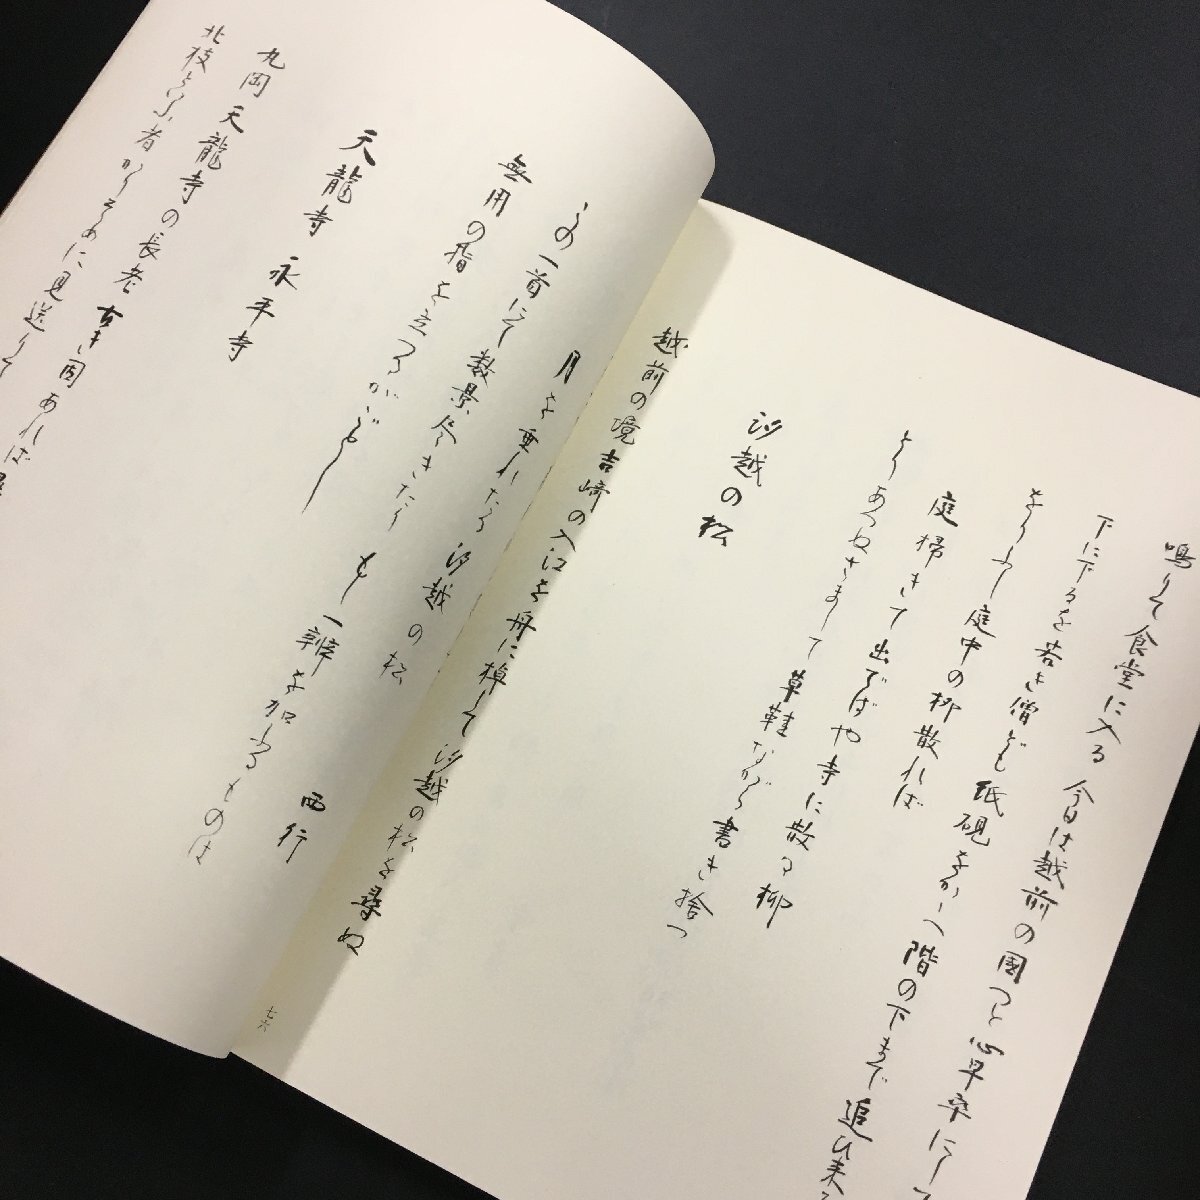 鳴りて食堂に入る 今日は越前の国へと心早卒にして
下に下るを若き僧ども紙硯をかゝへ 階の下まで追ひ来る
をりふし庭中の柳散れば
庭掃きて出でばや寺に散る柳
とりあへぬさまして草鞋ながら書き捨つ
汐越の松
越前の境 吉崎の入江を舟に棹して汐越の松を尋ぬ
月を重れたる汐越の松 西行
この一首にて数景尽きたり もし一辨を加ふるものは
無用の指を立つるがごとし
天龍寺 永平寺
丸岡天龍寺の長老 古き因あれば
北枝といふ者かりそめに見送りて
七六